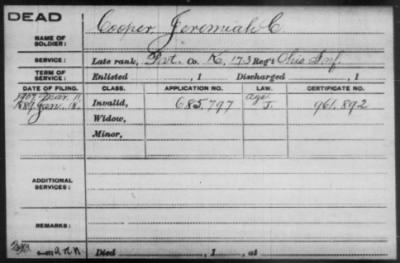 DEAD
NAME OF SOLDIER: Cooper, Jeremiah C
SERVICE: Late rank, Pvt. Co. K, 173 Reg't Ohio Inf.
TERM OF SERVICE: Enlisted , 1 Discharged , 1
DATE OF FILING. CLASS. APPLICATION NO. LAW. CERTIFICATE NO.
1907 Mar. 11 age
1889 Jan. 18. Invalid, 685,797 J. 961,892
Widow,
Minor,
ADDITIONAL SERVICES:
REMARKS:
Died , 1 , at